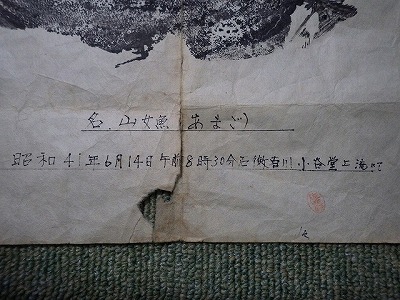 名.山女魚(あまご)
昭和41年6月14日午前8時30分 川小 堂上流にて